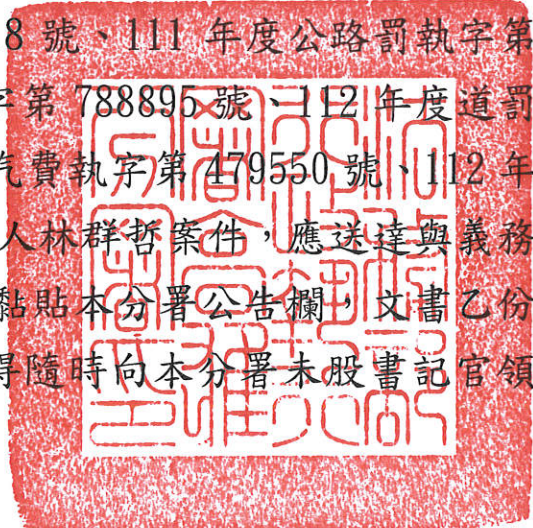 8 號、111 年度公路罰執字第
字第 788895 號、112 年度道罰
汽費執字第 479550 號、112 年
人林群哲案件，應送達與義務
黏貼本分署公告欄，文書乙份
得隨時向本分署未股書記官領